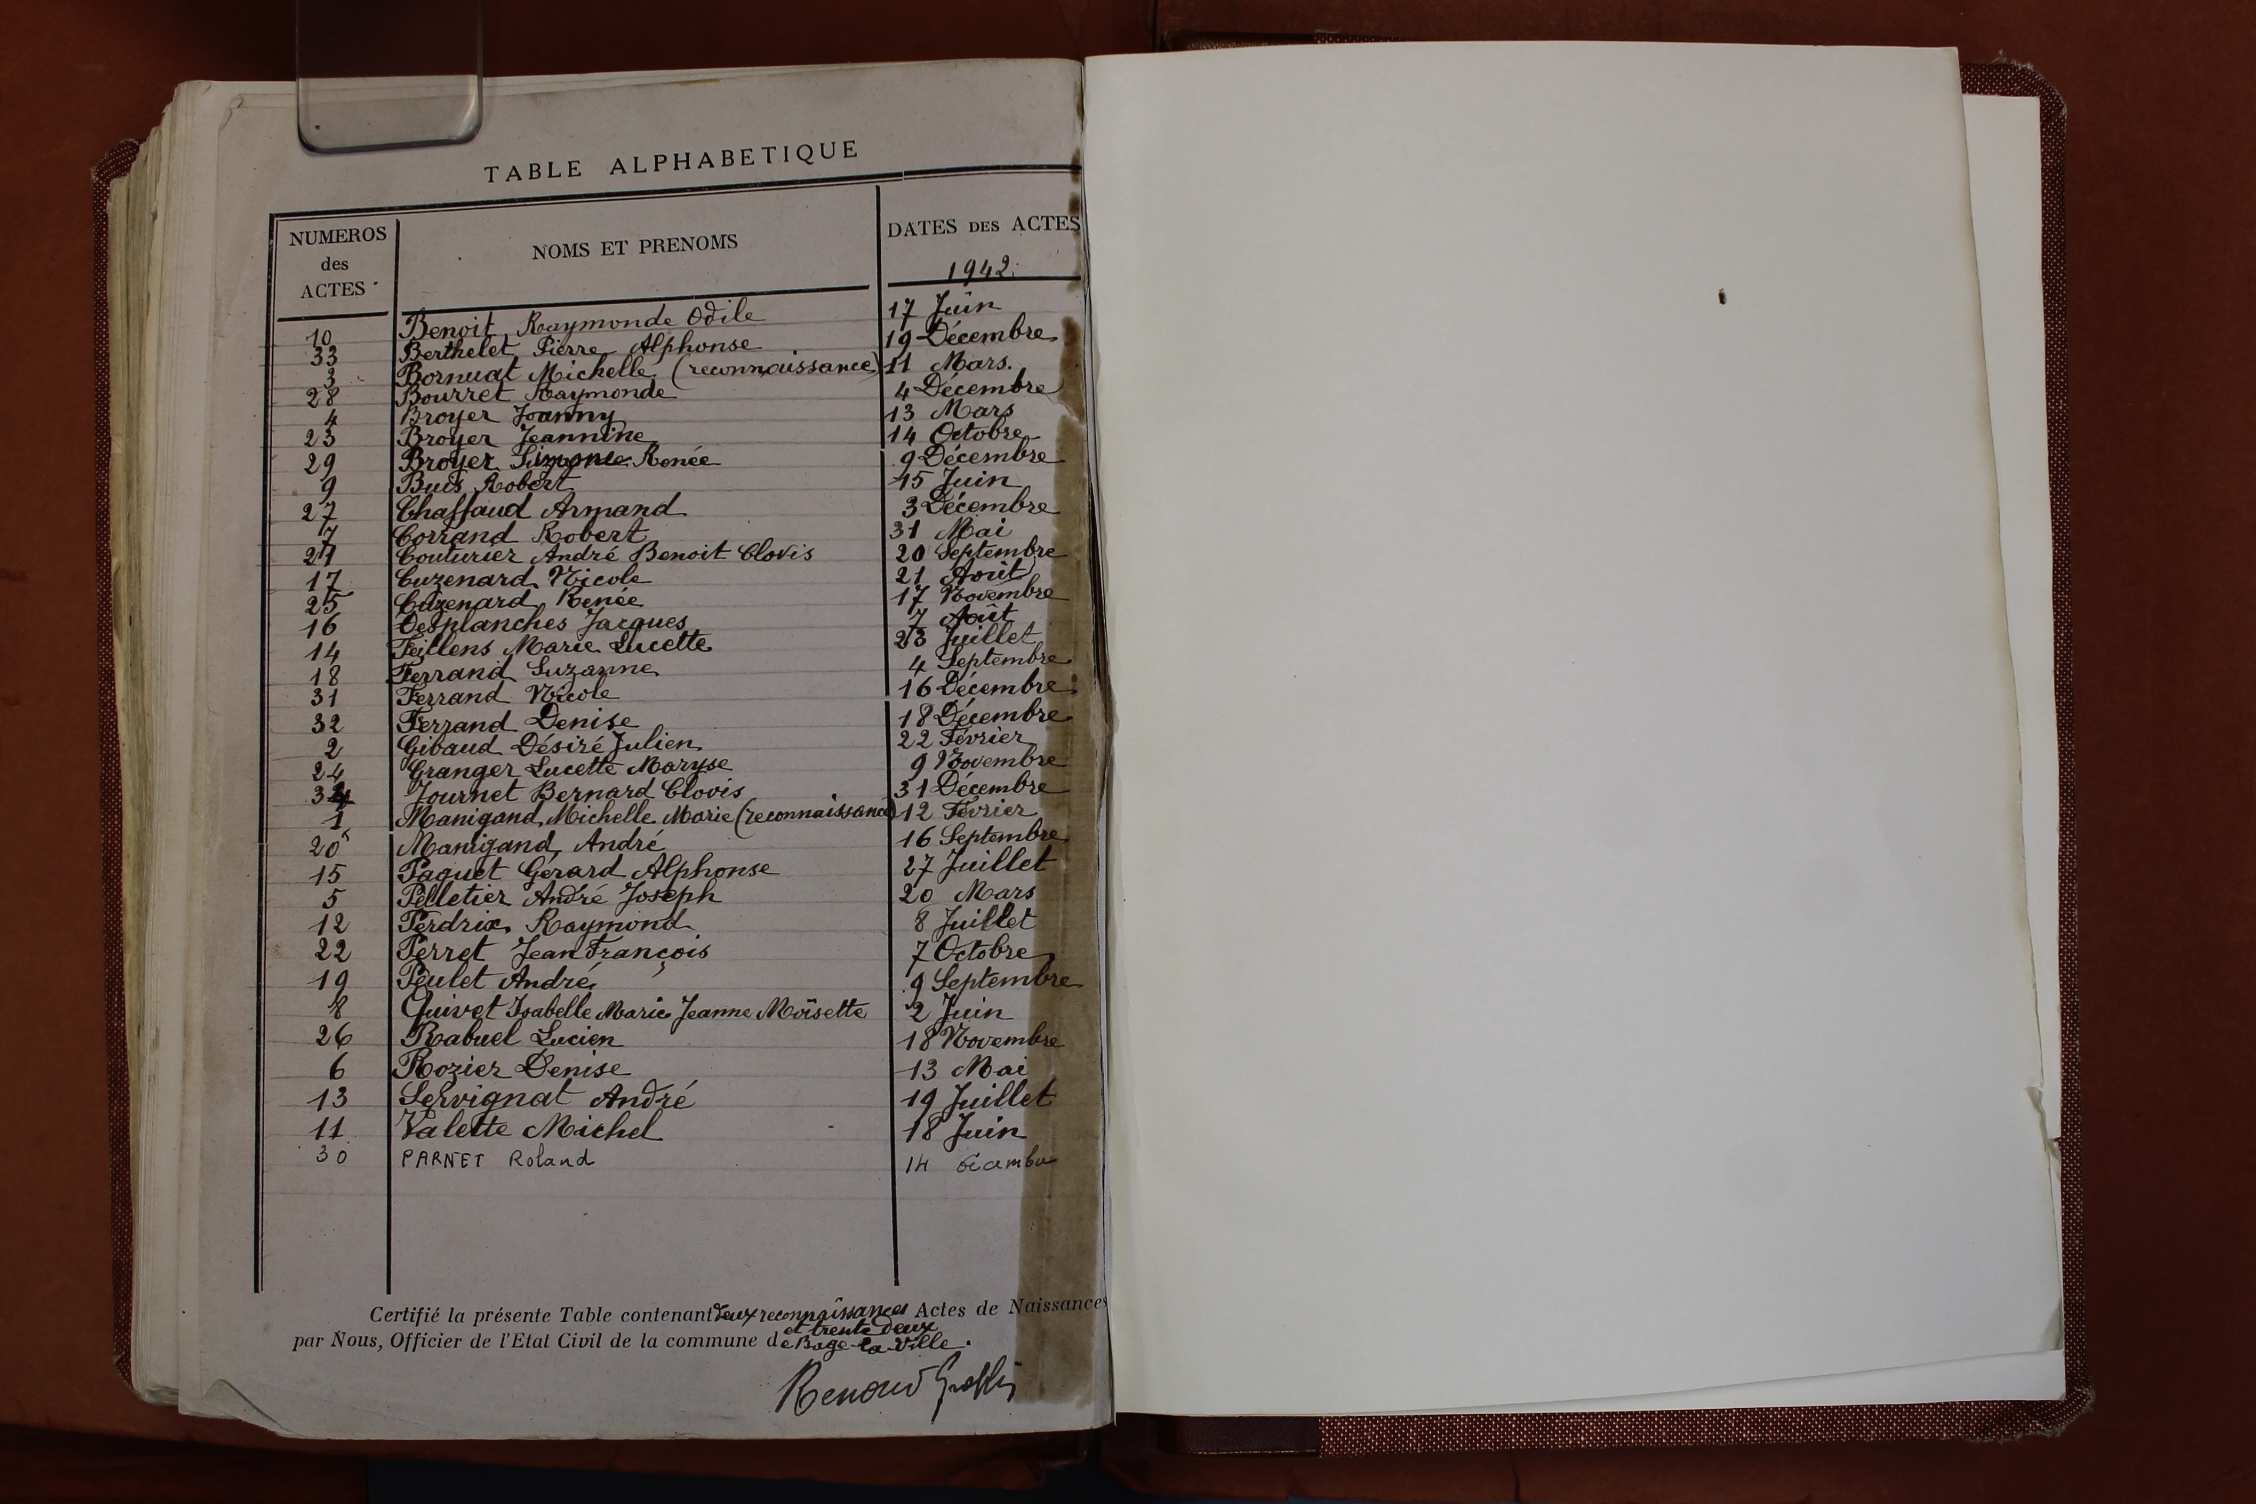 TABLE ALPHABETIQUE
NUMEROS des ACTES NOMS ET PRENOMS DATES DES ACTES
1942
10 Benoit Raymonde Odile 17 Juin
33 Berthelet Pierre Alphonse 19 Décembre
3 Bornuat Michelle (reconnaissance) 11 Mars.
28 Bourret Raymonde 4 Décembre
4 Broyer Joanny 13 Mars
23 Broyer Jeannine 14 Octobre
29 Broyer Renée 9 Décembre
9 Buis Robert 15 Juin
27 Chaffaud Armand 3 Décembre
7 Corrand Robert 31 Mai
21 Couturier André Benoit Clovis 20 Septembre
17 Cuzenard Nicole 21 Août
25 Cuzenard Renée 17 Novembre
16 Desplanches Jacques 7 Août
14 Feillens Marie Lucette 23 Juillet
18 Ferrand Suzanne 4 Septembre
31 Ferrand Nicole 16 Décembre
32 Ferrand Denise 18 Décembre
2 Gibaud Désiré Julien 22 Février
24 Granger Lucette Maryse 9 Novembre
34 Journet Bernard Clovis 31 Décembre
1 Manigand Michelle Marie (reconnaissance) 12 Février
20 Manigand André 16 Septembre
15 Paquet Gérard Alphonse 27 Juillet
5 Pelletier André Joseph 20 Mars
12 Perdrix Raymond 8 Juillet
22 Perret Jean François 7 Octobre
19 Peulet André 9 Septembre
8 Quivet Isabelle Marie Jeanne Moïsette 2 Juin
26 Rabuel Lucien 18 Novembre
6 Rozier Denise 13 Mai
13 Servignat André 19 Juillet
11 Valette Michel 18 Juin
30 PARNET Roland 14
Certifié la présente Table contenant deux reconnaissances Actes de Naissances
et trente deux
par Nous, Officier de l'Etat Civil de la commune de Bage-la-Ville.
Renoud